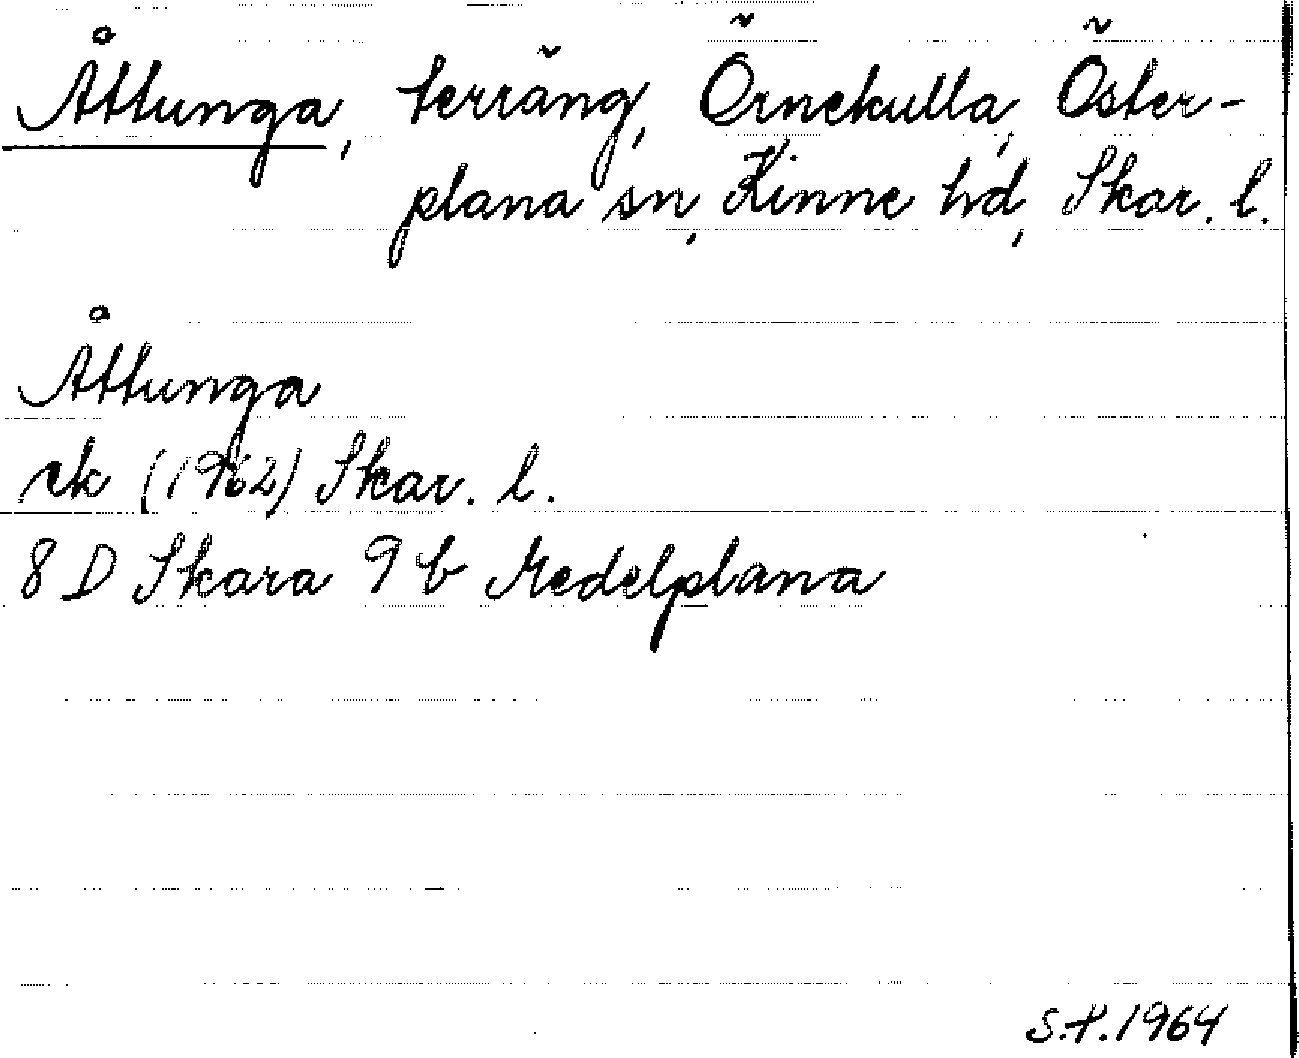 Åttunga, terräng, Örnekulla, Öster-
plana sn, Kinne hd, Skar. l.
Åttunga
rk (1962) Skar. l.
8 D Skara 9 b Medelplana
S.P. 1964